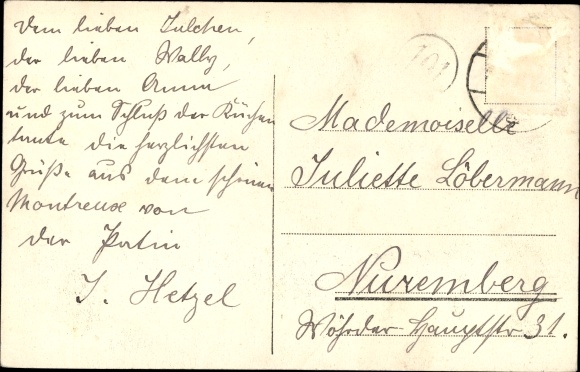 Dem lieben Julchen,
der lieben Wally,
der lieben Anna
und zum Schluß der Küchen
tante die herzlichsten
Grüße aus dem schönen
Montreux von
der Patin
J. Hetzel
101
Mademoiselle
Juliette Löbermann
Nuremberg
Wöhrder Hauptstr 31.